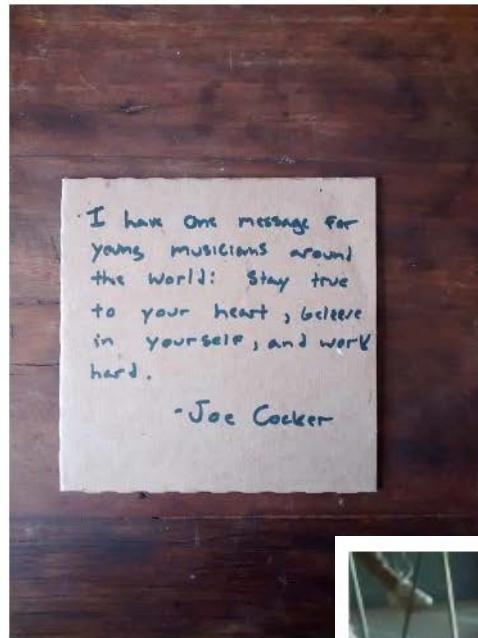 I have one message for
young musicians around
the world: Stay true
to your heart, beleeve
in yourself, and work
hard.
-Joe Cocker